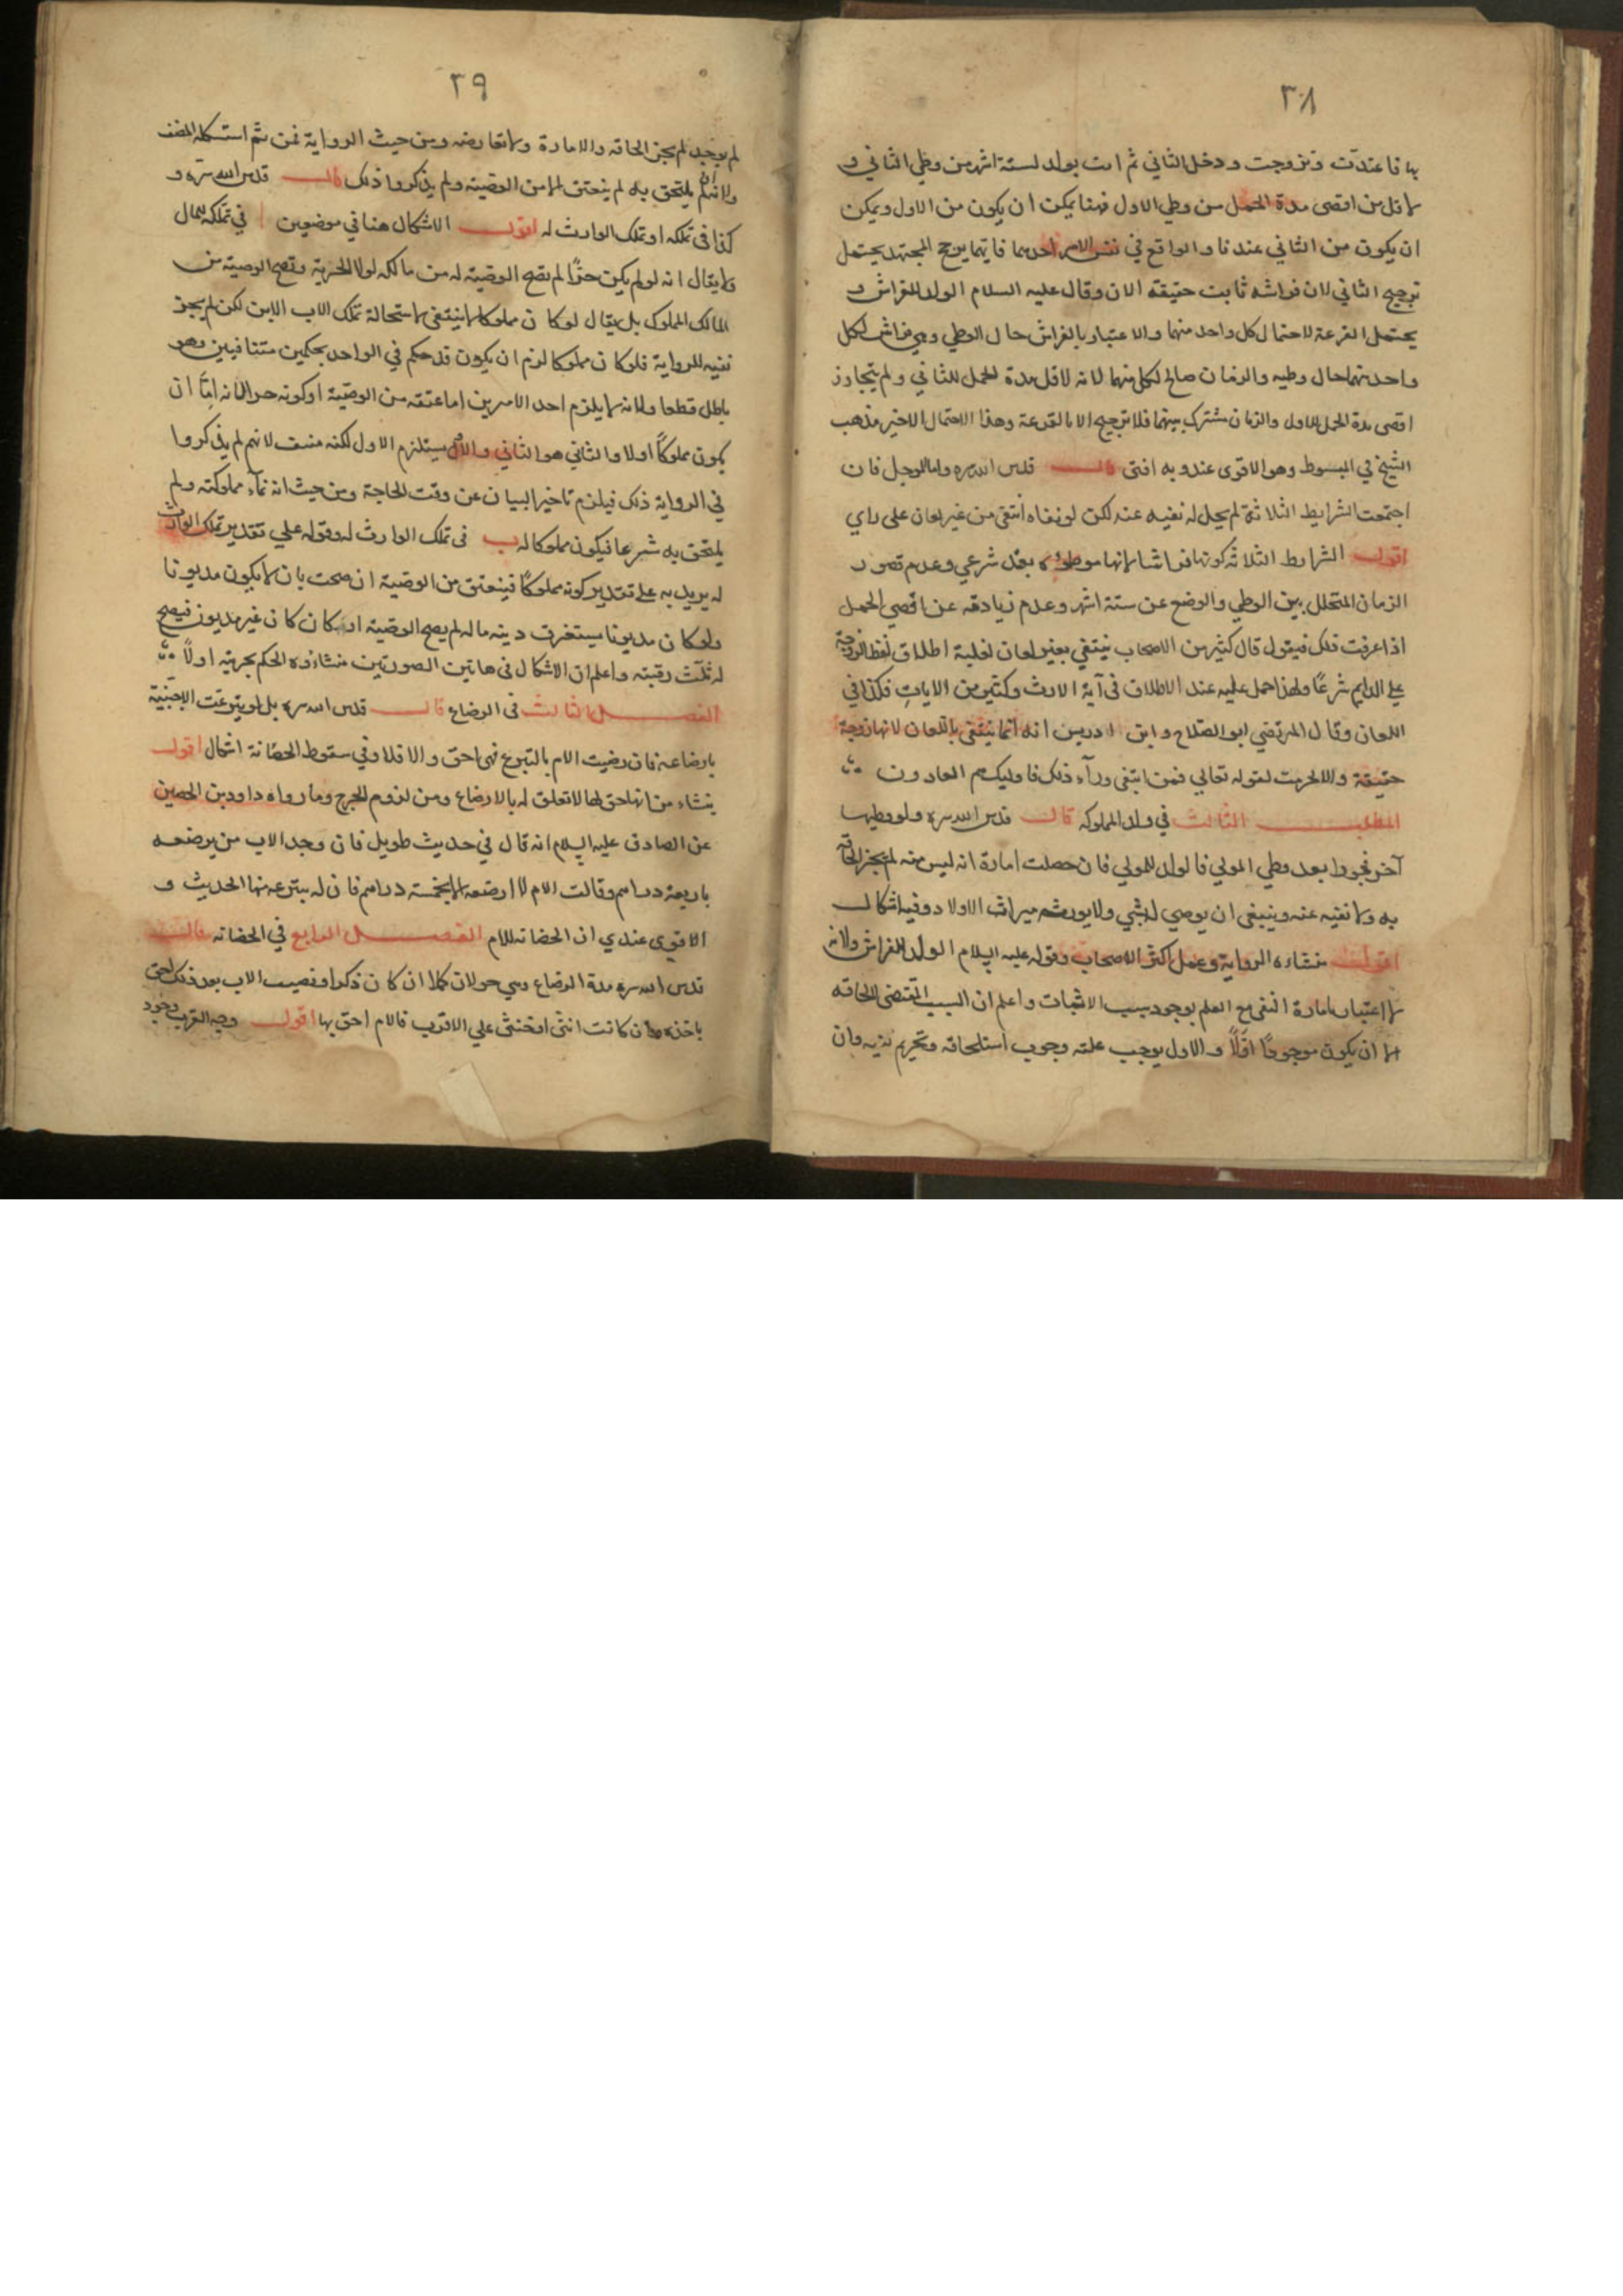 ٣٨
بها فاعتدّت وتزوجت ودخل الثاني ثم اتت بولد لستة اشهر من وطي الثاني و
لاقل من اقصى مدة الحمل من وطي الاول فهنا يمكن ان يكون من الاول ويمكن
ان يكون من الثاني عندنا والواقع في نفس الامر احدهما فايهما يرجح المجتهد يحتمل
ترجيح الثاني لان فراشه ثابت حقيقه الان وقال عليه السلام الولد للفراش و
يحتمل القرعة لاحتمال كل واحد منهما والاعتبار بالفراش حال الوطي وهي فراش لكل
واحد منهما حال وطيه والزمان صالح لكل منهما لانه لاقل مدة الحمل للثاني ولم يتجاوز
اقصى مدة الحمل للاول والزمان مشترك بينهما فلا ترجيح الا بالقرعة وهذا الاحتمال الاخير مذهب
الشيخ في المبسوط وهو الاقوى عندي وبه افتى قال قدس الله سره واما للرجل فان
اجتمعت الشرايط الثلاثة لم يحل له نفيه عنه لكن لو نفاه انتفى من غير لعان على راي
اقول الشرايط الثلاثة كونها فراشا لانها موطوءه بعقد شرعي وعدم قصور
الزمان المتخلل بين الوطي والوضع عن ستة اشهر وعدم زيادته عن اقصى الحمل
اذا عرفت ذلك فيقول قال كثير من الاصحاب ينتفي بغير لعان لغلبة اطلاق لفظ الزوجة
على الدايم شرعًا ولهذا حمل عليه عند الاطلاق في آية الارث وكثير من الايات فكذا في
اللعان وقال المرتضي ابو الصلاح وابن ادريس انه انما ينتفي باللعان لانها زوجة
حقيقة والا لحرمت لقوله تعالى فمن ابتغى ورآء ذلك فاوليك هم العادون
المطلب الثالث في ولد المملوكه قال قدس الله سره ولو وطيها
آخر فجورا بعد وطي المولي فالولد للمولي فان حصلت امارة انه ليس منه لم يجز الحاقه
به ولا نفيه عنه وينبغي ان يوصي له بشي ولا يورثه ميراث الاولاد وفيه اشكال
اقول منشاءه الرواية وعمل اكثر الاصحاب وقوله عليه السلام الولد للفراش ولانه
لا اعتبار بامارة النفي مع العلم بوجود سبب الاثبات واعلم ان السبب المقتضى لالحاقه
اما ان يكون موجودًا اوّلاً والاول يوجب علته وجوب استلحاقه وتحريم نفيه وان
٣٩
لم يوجد لم يجز الحاقه والامارة لا تعارضه ومن حيث الرواية فمن ثم استشكله المصنف
ولانه لم يلتحق به لم ينعتق من الوصية ولم يذكروا ذلك قال قدس الله سره و
كذا في تملكه او تملك الوارث له اقول الاشكال هنا في موضعين ا في تملكه لمال
لا يقال انه لو لم يكن حرًا لم تصح الوصية له من مالكه لولا الحرية وتصح الوصية من
المالك للمملوك بل يقال لو كان مملوكا لا ينتفي لاستحالة تملك الاب الابن لكن لم يجز
نفيه للرواية فلو كان مملوكا لزم ان يكون قد حكم في الواحد بحكمين متنافيين وهو
باطل قطعا ولانه لا يلزم احد الامرين اما عتقه من الوصية او كونه حرا لانه امّا ان
يكون مملوكًا اولا والثاني هو الثاني والاول يستلزم الاول لكنه منتف لانهم لم يذكروا
في الرواية ذلك فيلزم تاخير البيان عن وقت الحاجة ومن حيث انه نمآء مملوكته ولم
يلتحق به شرعا فيكون مملوكا له ب في تملك الوارث له وقوله على تقدير تملك الوارث
له يريد به على تقدير كونه مملوكًا فينعتق من الوصية ان صحت بان لا يكون مديونا
ولو كان مديونا يستغرق دينه ماله لم يصح الوصية او كان كان غير مديون فيصح
له ثلث رقبته واعلم ان الاشكال في هاتين الصورتين منشاؤه الحكم بحريته اولاً
الفصل الثالث في الرضاع قال قدس الله سره بل لو تبرعت الاجنبية
بارضاعه فان رضيت الام بالتبرع فهي احق والا فلا وفي سقوط الحضانة اشكال اقول
ينشاء من انها حق لها لا تعلق له بالارضاع ومن لزوم الحرج وما رواه داود بن الحصين
عن الصادق عليه السلام انه قال في حديث طويل فان وجد الاب من يرضعه
باربعة دراهم وقالت الام لا ارضعه الا بخمسة دراهم فان له ينتزعه منها الحديث و
الاقوى عندي ان الحضانه للام الفصل الرابع في الحضانه قال
قدس الله سره مدة الرضاع وهي حولان كملا ان كان ذكرا فيصيب الاب بعد ذلك احق
باخذه وان كانت انثى او خنثى على الاقرب فالام احق بها اقول وجه القرب وجود